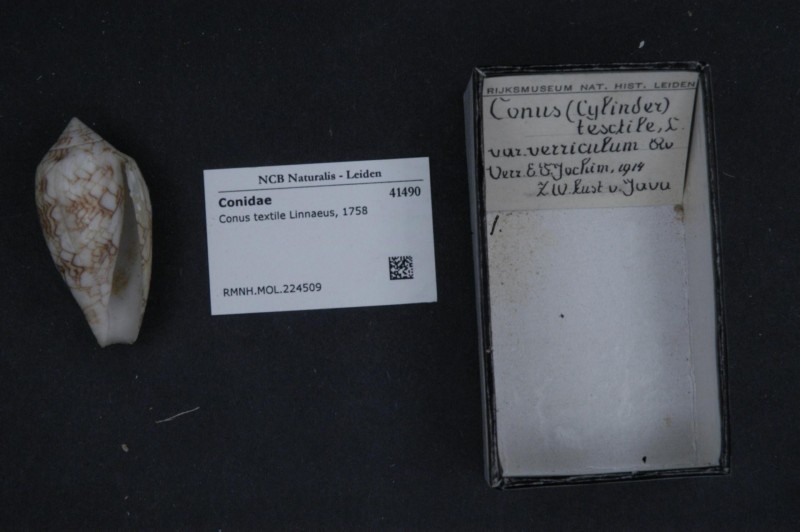 NCB Naturalis - Leiden
41490
Conidae
Conus textile Linnaeus, 1758
RMNH.MOL.224509
RIJKSMUSEUM NAT. HIST. LEIDEN
Conus (Cylinder)
texctile, L.
var. verriculum Rv
Verz. E. V. Jochim, 1914
Z W kust v. Java
1.